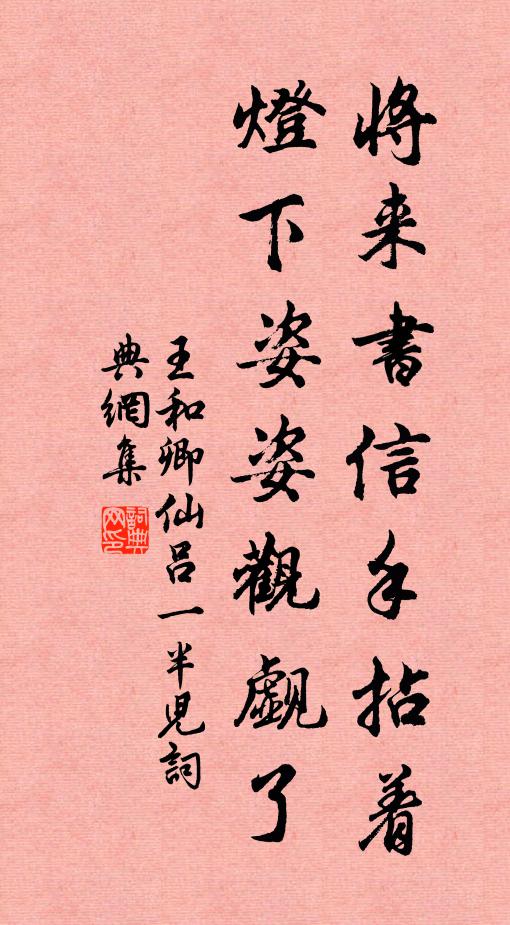 將来書信手拈着
燈下姿姿觀覷了
王和卿仙呂一半兒詞
典網集
詞典網印